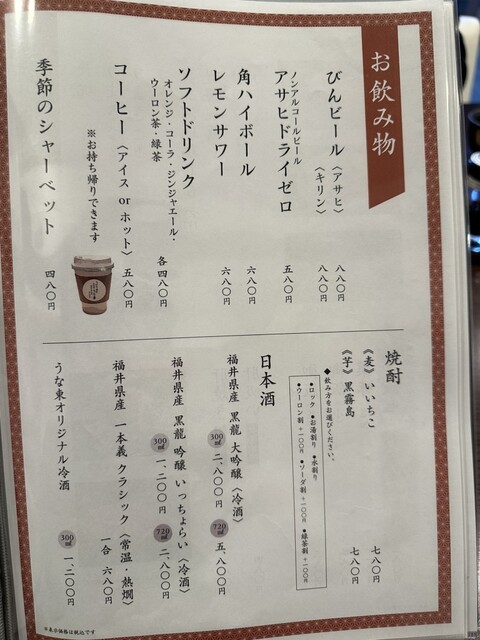 お飲み物
びんビール〈アサヒ〉 八八〇円
〈キリン〉 八八〇円
ノンアルコールビール
アサヒドライゼロ 五八〇円
角ハイボール 六八〇円
レモンサワー 六八〇円
ソフトドリンク 各四八〇円
オレンジ・コーラ・ジンジャエール・
ウーロン茶・緑茶
コーヒー〈アイス or ホット〉 五八〇円
※お持ち帰りできます
季節のシャーベット 四八〇円
焼酎
《麦》いいちこ 七八〇円
《芋》黒霧島 七八〇円
◆飲み方をお選びください。
●ロック ●お湯割り ●水割り
●ウーロン割+一〇〇円 ●ソーダ割+一〇〇円 ●緑茶割+一〇〇円
日本酒
福井県産 黒龍 大吟醸〈冷酒〉
300ml 二、八〇〇円 720ml 五、八〇〇円
福井県産 黒龍 吟醸 いっちょらい〈冷酒〉
300ml 一、二〇〇円 720ml 二、八〇〇円
福井県産 一本義 クラシック〈常温・熱燗〉
一合 六八〇円
うな東オリジナル冷酒
300ml 一、二〇〇円
※表示価格は税込です